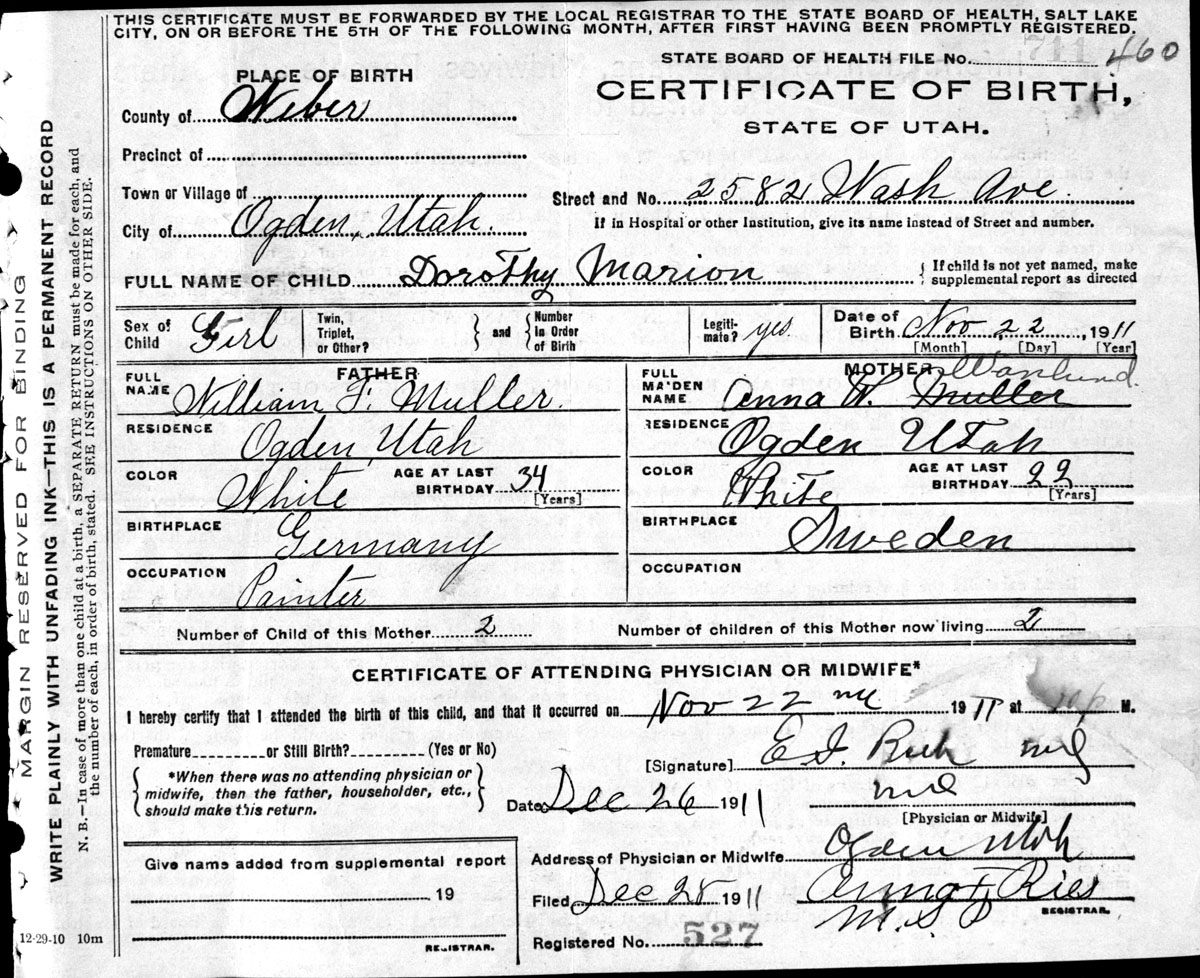 THIS CERTIFICATE MUST BE FORWARDED BY THE LOCAL REGISTRAR TO THE STATE BOARD OF HEALTH, SALT LAKE
CITY, ON OR BEFORE THE 5TH OF THE FOLLOWING MONTH, AFTER FIRST HAVING BEEN PROMPTLY REGISTERED.
STATE BOARD OF HEALTH FILE No. 460
PLACE OF BIRTH
CERTIFICATE OF BIRTH,
County of Weber
STATE OF UTAH.
Precinct of
Town or Village of
Street and No. 2582 Wash Ave
City of Ogden, Utah.
If in Hospital or other Institution, give its name instead of Street and number.
FULL NAME OF CHILD Dorothy Marion
{ If child is not yet named, make
supplemental report as directed
Sex of Child Girl
Twin, Triplet, or Other? } and { Number in Order of Birth
Legiti-mate? yes
Date of Birth Nov 22, 1911
[Month] [Day] [Year]
FATHER
FULL NAME William F. Muller.
RESIDENCE Ogden, Utah
COLOR White
AGE AT LAST BIRTHDAY 34 [Years]
BIRTHPLACE Germany
OCCUPATION Painter
MOTHER
FULL MAIDEN NAME Anna W. Muller
RESIDENCE Ogden Utah
COLOR White
AGE AT LAST BIRTHDAY 22 [Years]
BIRTHPLACE Sweden
OCCUPATION
Number of Child of this Mother 2
Number of children of this Mother now living 2
CERTIFICATE OF ATTENDING PHYSICIAN OR MIDWIFE*
I hereby certify that I attended the birth of this child, and that it occurred on Nov 22 1911 at M.
Premature or Still Birth? (Yes or No)
[Signature] E. I.
{ *When there was no attending physician or
midwife, then the father, householder, etc.,
should make this return. }
Date Dec 26 1911
md
[Physician or Midwife]
Give name added from supplemental report
19
REGISTRAR.
Address of Physician or Midwife Ogden Utah
Filed Dec 28 1911 Anna F. Ries
REGISTRAR.
Registered No. 527
12-29-10 10m
MARGIN RESERVED FOR BINDING
WRITE PLAINLY WITH UNFADING INK—THIS IS A PERMANENT RECORD
N. B.—In case of more than one child at a birth, a SEPARATE RETURN must be made for each, and
the number of each, in order of birth, stated. SEE INSTRUCTIONS ON OTHER SIDE.